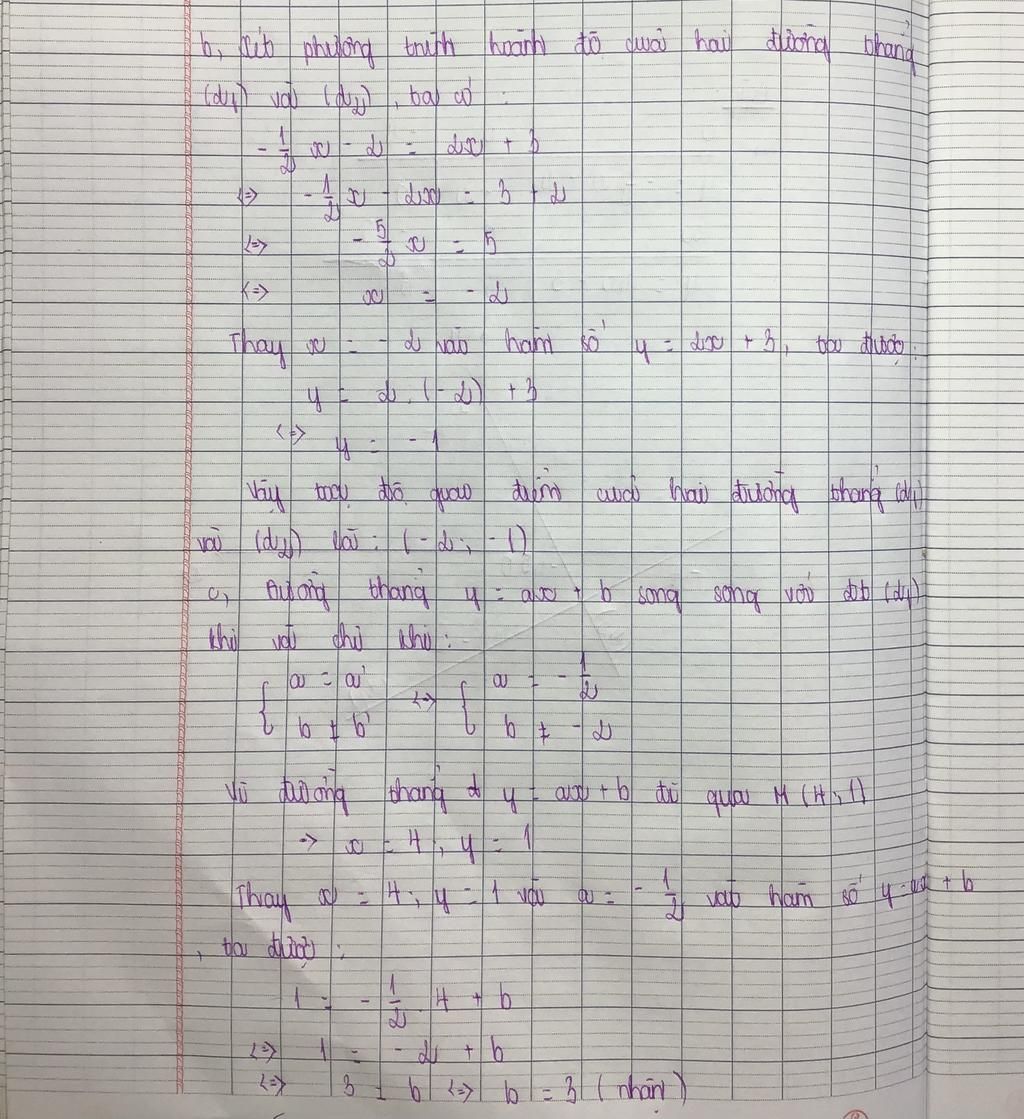 b, Xét phương trình hoành độ của hai đường thẳng
(d₁) và (d₂), ta có :
- 1/2 x - 2 = 2x + 3
<=> - 1/2 x - 2x = 3 + 2
<=> - 5/2 x = 5
<=> x = - 2
Thay x = - 2 vào hàm số y = 2x + 3, ta được:
y = 2. (-2) + 3
<=> y = - 1
Vậy toạ độ giao điểm của hai đường thẳng (d₁)
và (d₂) là : (-2; -1)
c, Đường thẳng y = ax + b song song với đt (d₁)
khi và chỉ khi :
{ a = a' <=> { a = - 1/2
{ b ≠ b' { b ≠ - 2
Vì đường thẳng y = ax + b đi qua M (4; 1)
=> x = 4, y = 1
Thay x = 4; y = 1 và a = - 1/2 vào hàm số y = ax + b
, ta được :
1 = - 1/2 . 4 + b
<=> 1 = - 2 + b
<=> 3 = b <=> b = 3 (nhận)